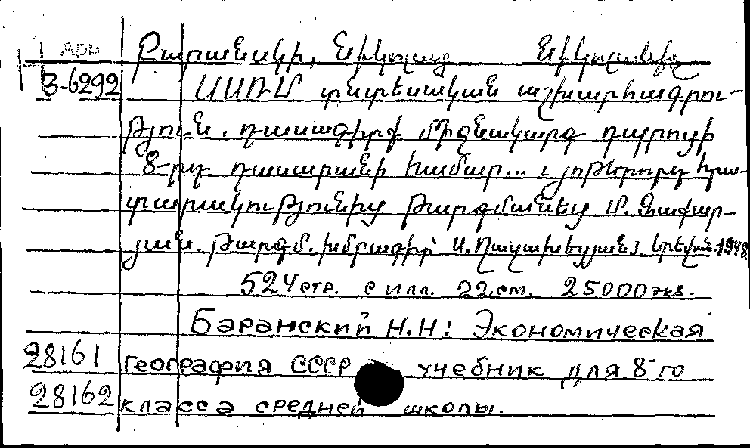 1 Арм Բարանսկի, Նիկոլայ Նիկոլաևիչ
3-6292 ՍՍՌՄ տնտեսական աշխարհագրու-
թյուն. դասագիրք միջնակարգ դպրոցի
8-րդ դասարանի համար... յոթերորդ հրա-
տարակությունից թարգմանեց Մ. Զաքար-
յան. Թարգմ. խմբագիր Երևան, 1948.
524 стр. с илл. 22 см. 25000 экз.
Баранский Н.Н: Экономическая
28161 география СССР учебник для 8-го
28162 класса средней школы.